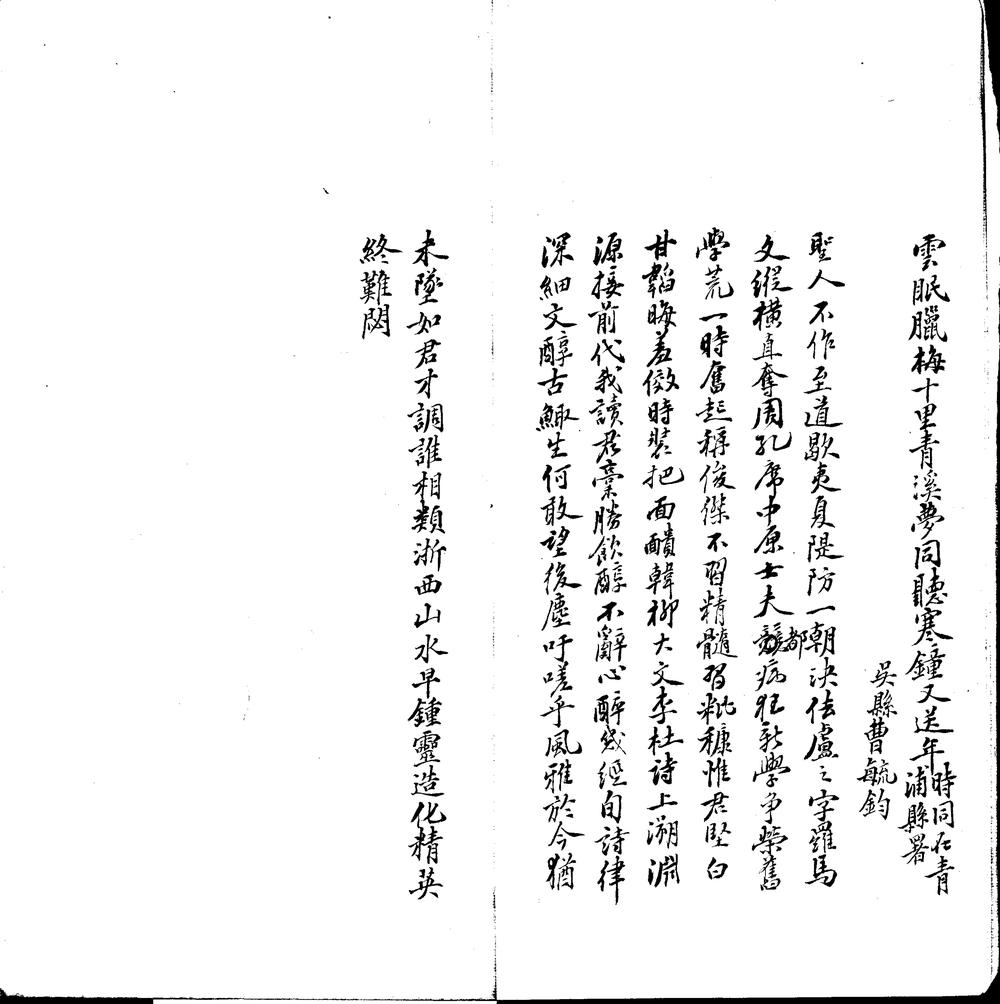 雲眠臘梅十里青溪夢同聽寒鐘又送年時同在青浦縣署
吳縣曹毓鈞
聖人不作至道歇夷夏隄防一朝決佉盧之字羅馬
文縱橫直奪周孔席中原士夫都病狂新學爭榮舊
學荒一時奮起稱俊傑不習精髓習粃糠惟君堅白
甘韜晦羞傚時裝把面靧韓柳大文李杜詩上溯淵
源接前代我讀君稾勝飲醇不辭心醉幾經旬詩律
深細文醇古鯫生何敢望後塵吁嗟乎風雅於今猶
未墜如君才調誰相類浙西山水早鍾靈造化精英
終難閟